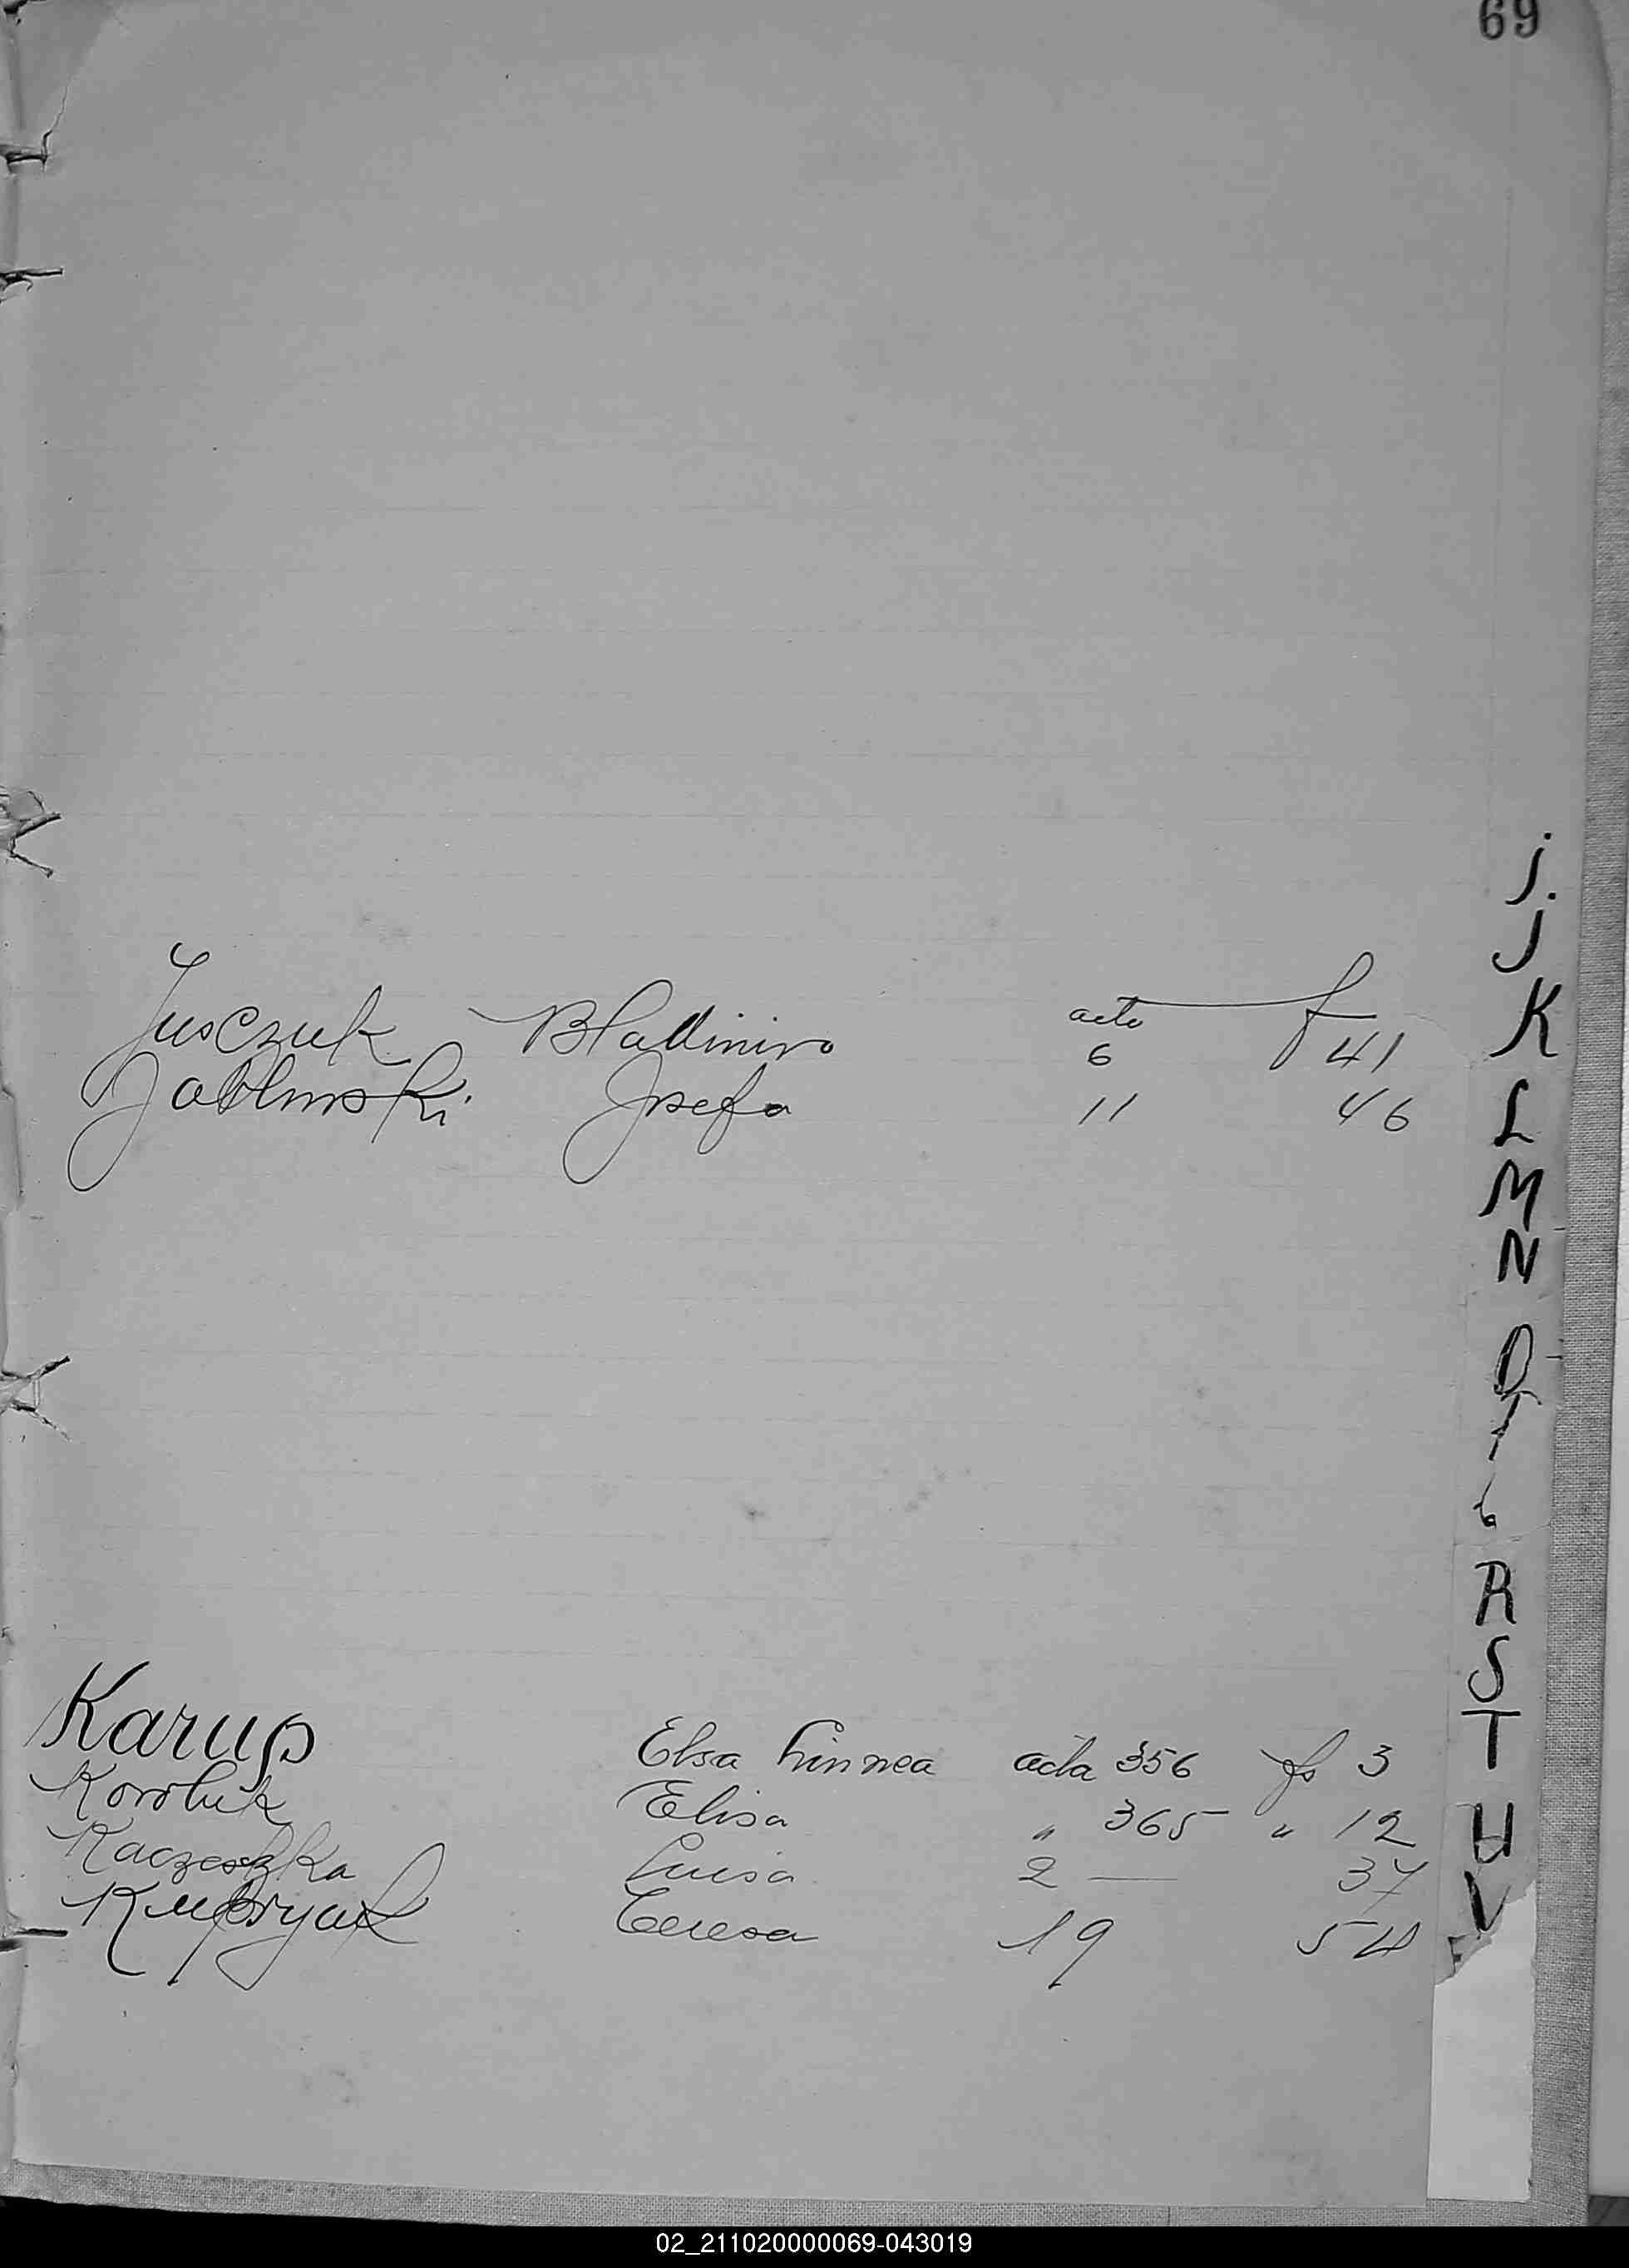 69
acta f
Jusczuk Bladimiro 6 41
Jablonski Josefa 11 46
Karup Elsa Linnea acta 356 fo 3
Koroluk Elisa " 365 " 12
Luisa 2 — 37
Teresa 19 54
j.
J
K
L
M
N
O
R
S
T
U
V
02_211020000069-043019